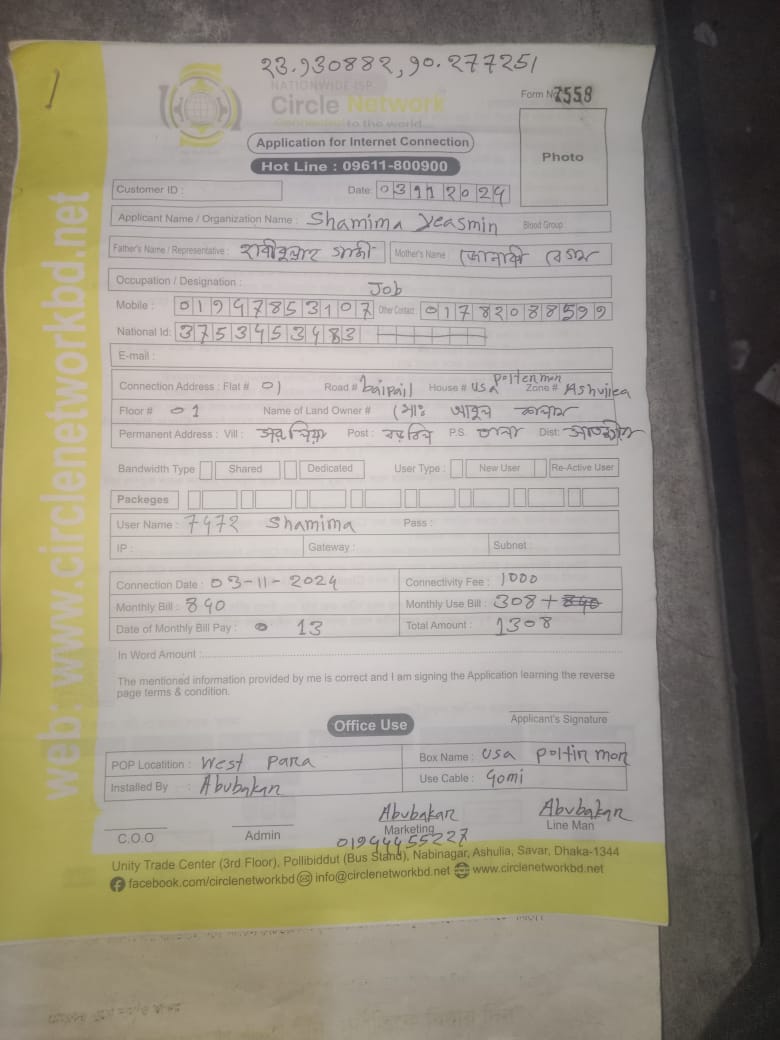 1
23.930882, 90.277251
NATIONWIDE ISP
Circle Network
Connected to the world
Form No 7559
Application for Internet Connection
Hot Line : 09611-800900
Photo
Customer ID :
Date: 03112024
Applicant Name / Organization Name : Shamima Yeasmin Blood Group :
Father's Name / Representative : Mother's Name :
Occupation / Designation : Job
Mobile : 01947853107 Other Contact : 01782088599
National Id: 3753453483
E-mail :
Connection Address : Flat # 01 Road # baipail House # usa poltenmon Zone # Ashuliea
Floor # 01 Name of Land Owner # মোঃ আবুল কালাম
Permanent Address : Vill : Post : P.S Dist:
Bandwidth Type Shared Dedicated User Type : New User Re-Active User
Packeges
User Name : 7472 Shamima Pass :
IP : Gateway : Subnet
Connection Date : 03-11-2024 Connectivity Fee : 1000
Monthly Bill : 840 Monthly Use Bill : 308 + 840
Date of Monthly Bill Pay : 13 Total Amount : 1308
In Word Amount :
The mentioned information provided by me is correct and I am signing the Application learning the reverse
page terms & condition.
Applicant's Signature
Office Use
POP Locatition : West Para Box Name : usa poltin mon
Installed By : Abubakar Use Cable : 90mi
Abubakar Abubakar
C.O.O Admin Marketing Line Man
01944455227
Unity Trade Center (3rd Floor), Pollibiddut (Bus Stand), Nabinagar, Ashulia, Savar, Dhaka-1344
facebook.com/circlenetworkbd info@circlenetworkbd.net www.circlenetworkbd.net
web: www.circlenetworkbd.net